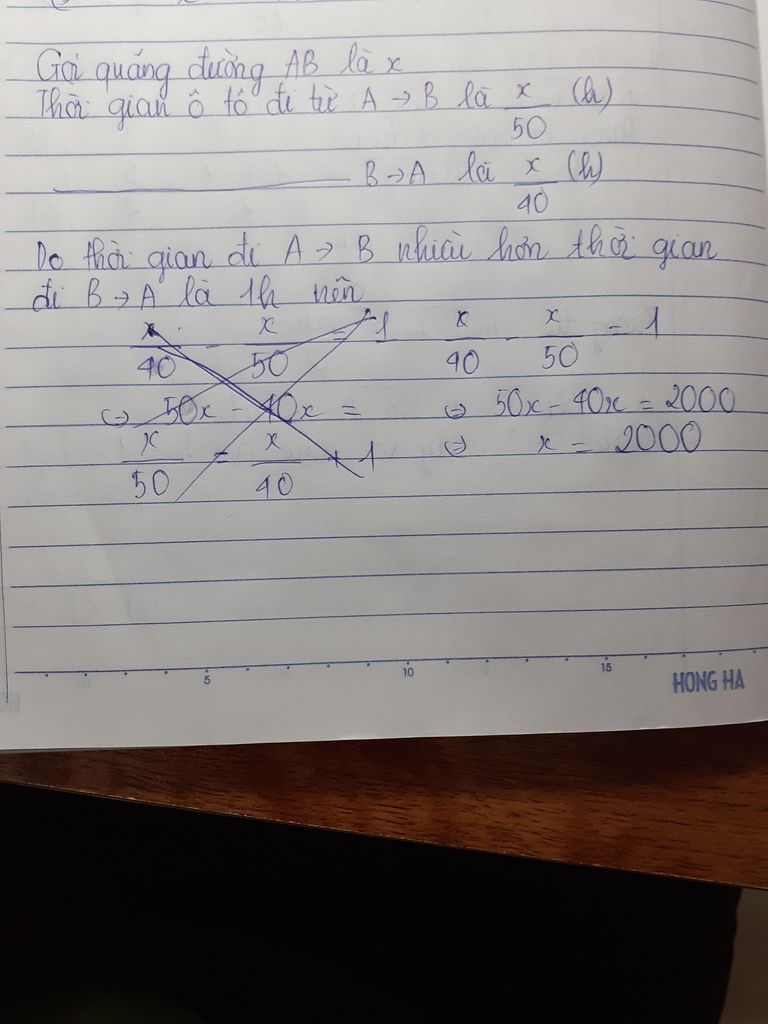 Gọi quãng đường AB là x
Thời gian ô tô đi từ A → B là x/50 (h)
B → A là x/40 (h)
Do thời gian đi A → B nhiều hơn thời gian
đi B → A là 1h nên
x/40 - x/50 = 1
<=> 50x - 40x =
x/50 = x/40 + 1
x/40 - x/50 = 1
<=> 50x - 40x = 2000
<=> x = 2000
5 10 15
HONG HA